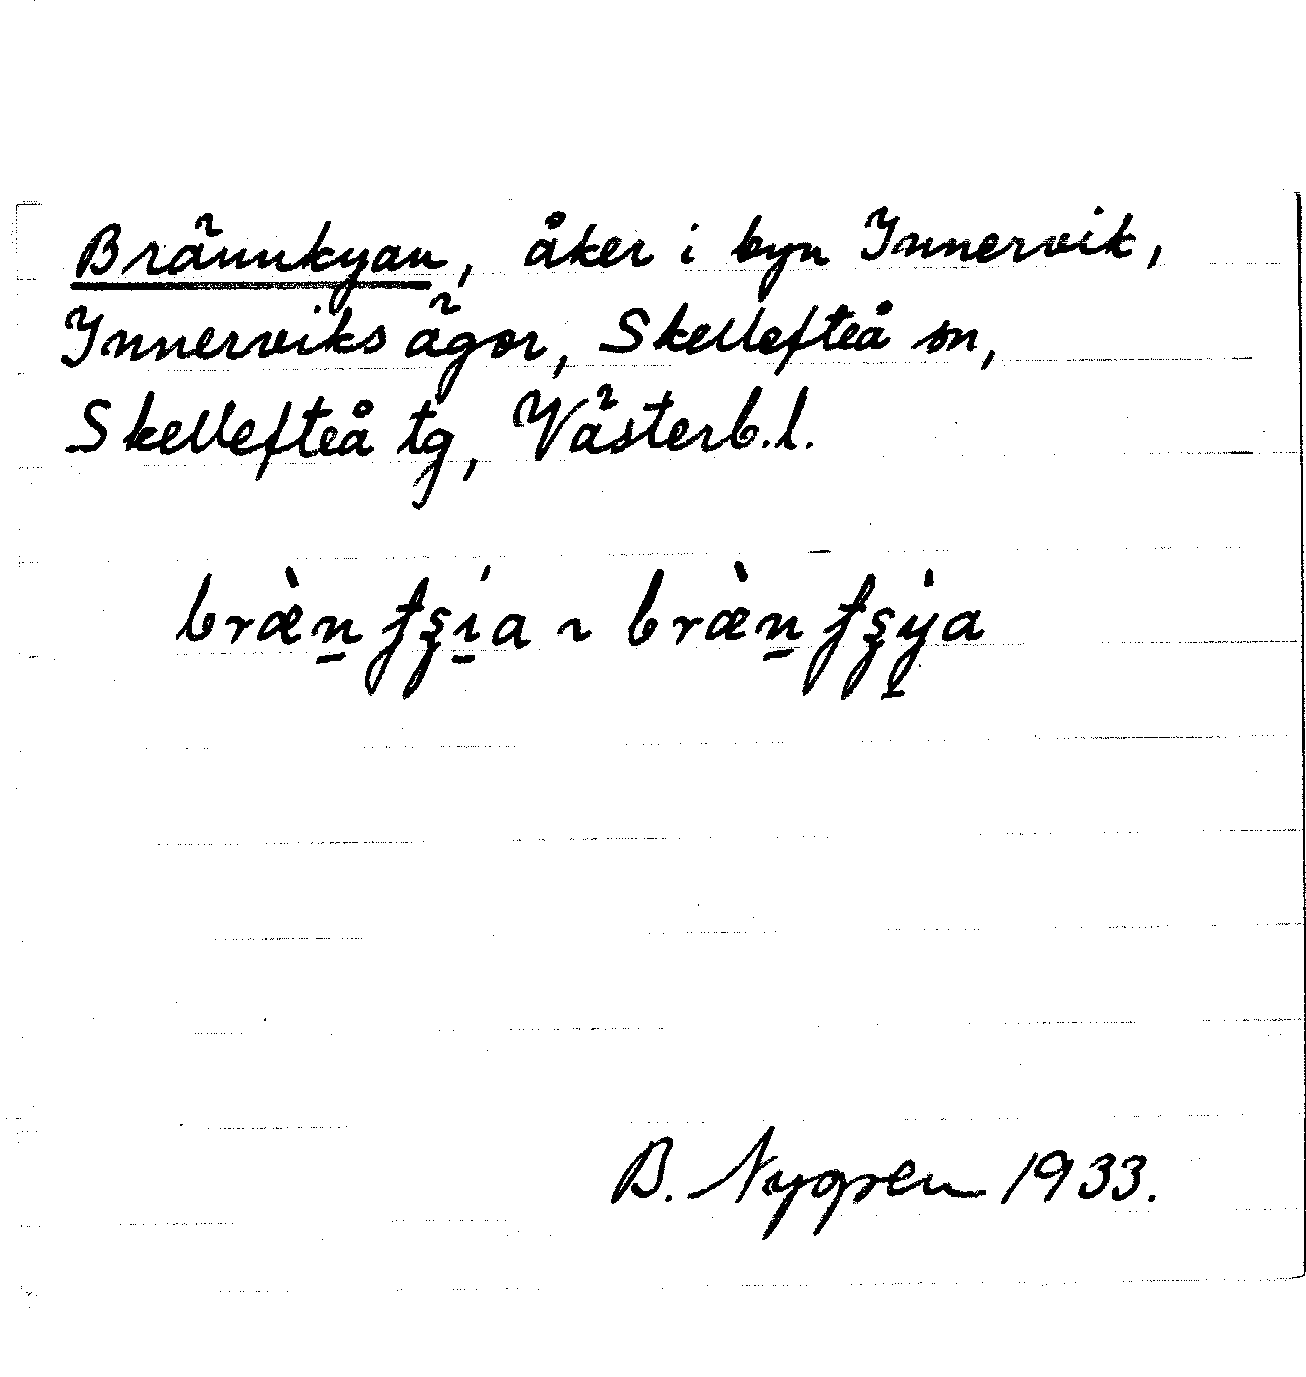 Brännkyan, åker i byn Innervik,
Innerviks ägor, Skellefteå sn,
Skellefteå tg, Västerb.l.
bræ̀n̲ ʈʂí̲a ~ bræ̀n̲ ʈʂỳ̲a
B. Nygren 1933.